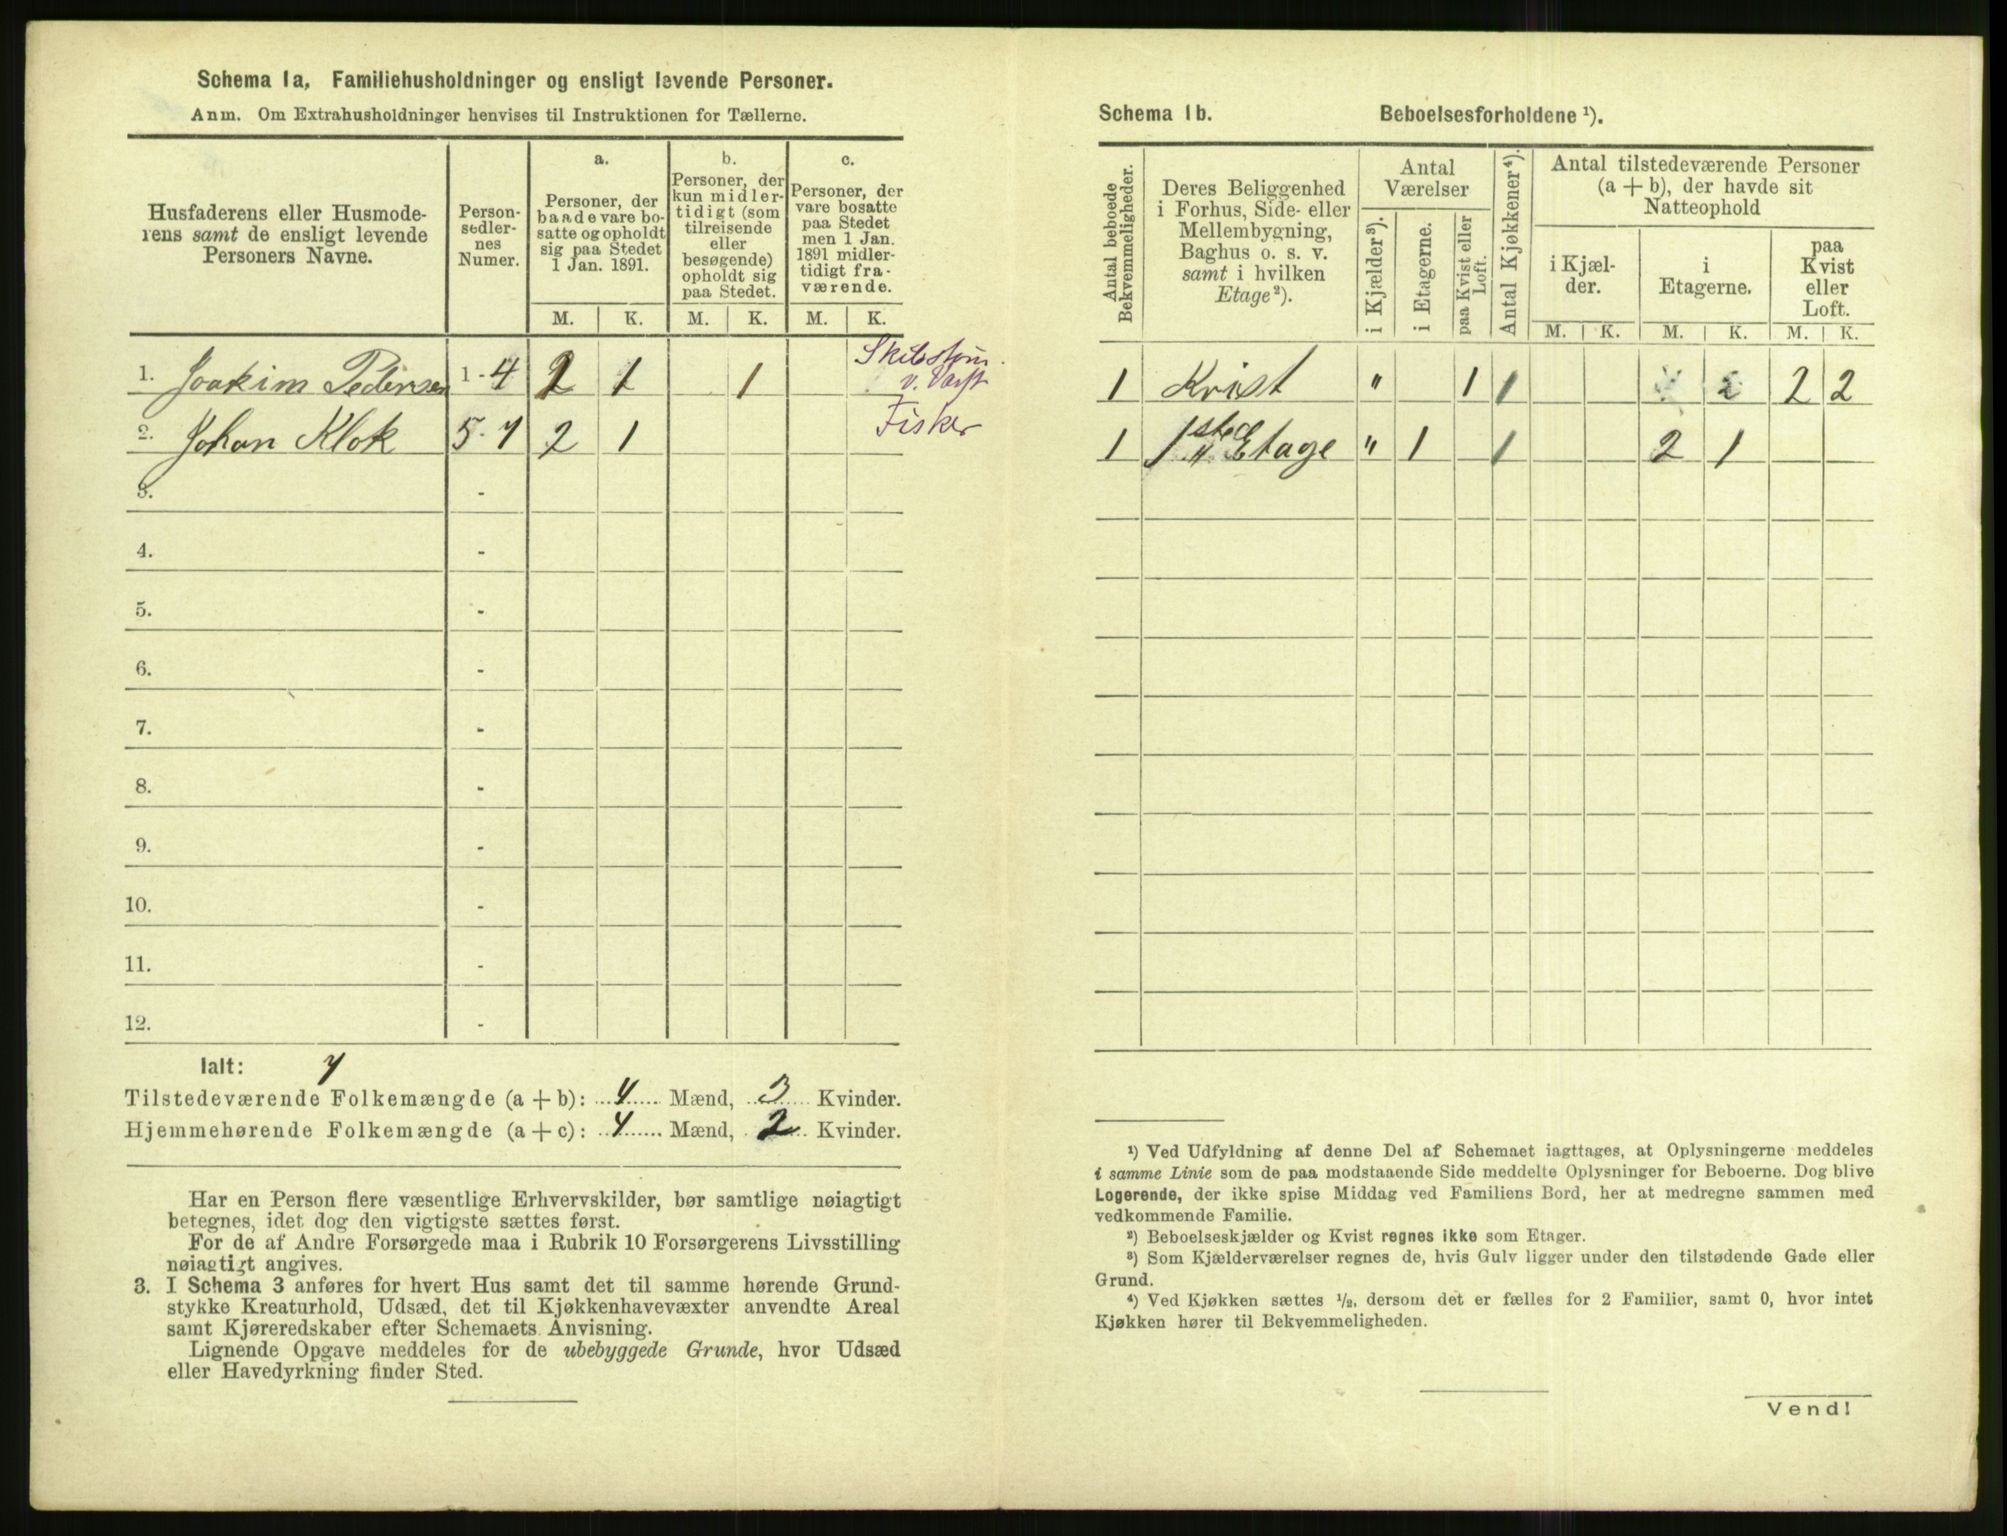 Schema 1a, Familiehusholdninger og ensligt levende Personer.
Anm. Om Extrahusholdninger henvises til Instruktionen for Tællerne.
Husfaderens eller Husmode-
rens samt de ensligt levende
Personers Navne.
Person-
sedler-
nes
Numer.
a.
Personer, der
baade vare bo-
satte og opholdt
sig paa Stedet
1 Jan. 1891.
b.
Personer, der
kun midler-
tidigt (som
tilreisende
eller
besøgende)
opholdt sig
paa Stedet.
c.
Personer, der
vare bosatte
paa Stedet
men 1 Jan.
1891 midler-
tidigt fra-
værende.
M. K. M. K. M. K.
1. Joakim Pedersen 1-4 2 1 1
2. Johan Klok 5-7 2 1 Fisker
3. -
4. -
5. -
6. -
7. -
8. -
9. -
10. -
11. -
12. -
Ialt: 7
Tilstedeværende Folkemængde (a + b): 4 Mænd, 3 Kvinder.
Hjemmehørende Folkemængde (a + c): 4 Mænd, 2 Kvinder.
Har en Person flere væsentlige Erhvervskilder, bør samtlige nøiagtigt
betegnes, idet dog den vigtigste sættes først.
For de af Andre Forsørgede maa i Rubrik 10 Forsørgerens Livsstilling
nøiagtigt angives.
3. I Schema 3 anføres for hvert Hus samt det til samme hørende Grund-
stykke Kreaturhold, Udsæd, det til Kjøkkenhavevæxter anvendte Areal
samt Kjøreredskaber efter Schemaets Anvisning.
Lignende Opgave meddeles for de ubebyggede Grunde, hvor Udsæd
eller Havedyrkning finder Sted.
Schema 1b. Beboelsesforholdene ¹).
Antal beboede
Bekvemmeligheder.
Deres Beliggenhed
i Forhus, Side- eller
Mellembygning,
Baghus o. s. v.
samt i hvilken
Etage²).
Antal
Værelser
i Kjælder³).
i Etagerne.
paa Kvist eller
Loft.
Antal Kjøkkener⁴).
Antal tilstedeværende Personer
(a + b), der havde sit
Natteophold
i Kjæl-
der.
i
Etagerne.
paa
Kvist
eller
Loft.
M. K. M. K. M. K.
1 Kvist " 1 1 2 2
1 1ste Etage " 1 1 2 1
¹) Ved Udfyldning af denne Del af Schemaet iagttages, at Oplysningerne meddeles
i samme Linie som de paa modstaaende Side meddelte Oplysninger for Beboerne. Dog blive
Logerende, der ikke spise Middag ved Familiens Bord, her at medregne sammen med
vedkommende Familie.
²) Beboelseskjælder og Kvist regnes ikke som Etager.
³) Som Kjælderværelser regnes de, hvis Gulv ligger under den tilstødende Gade eller
Grund.
⁴) Ved Kjøkken sættes ½, dersom det er fælles for 2 Familier, samt 0, hvor intet
Kjøkken hører til Bekvemmeligheden.
Vend!